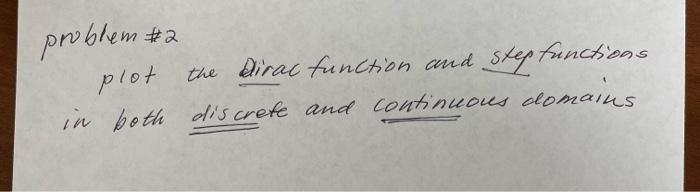 problem #2
plot the Dirac function and step functions
in both discrete and continuous domains